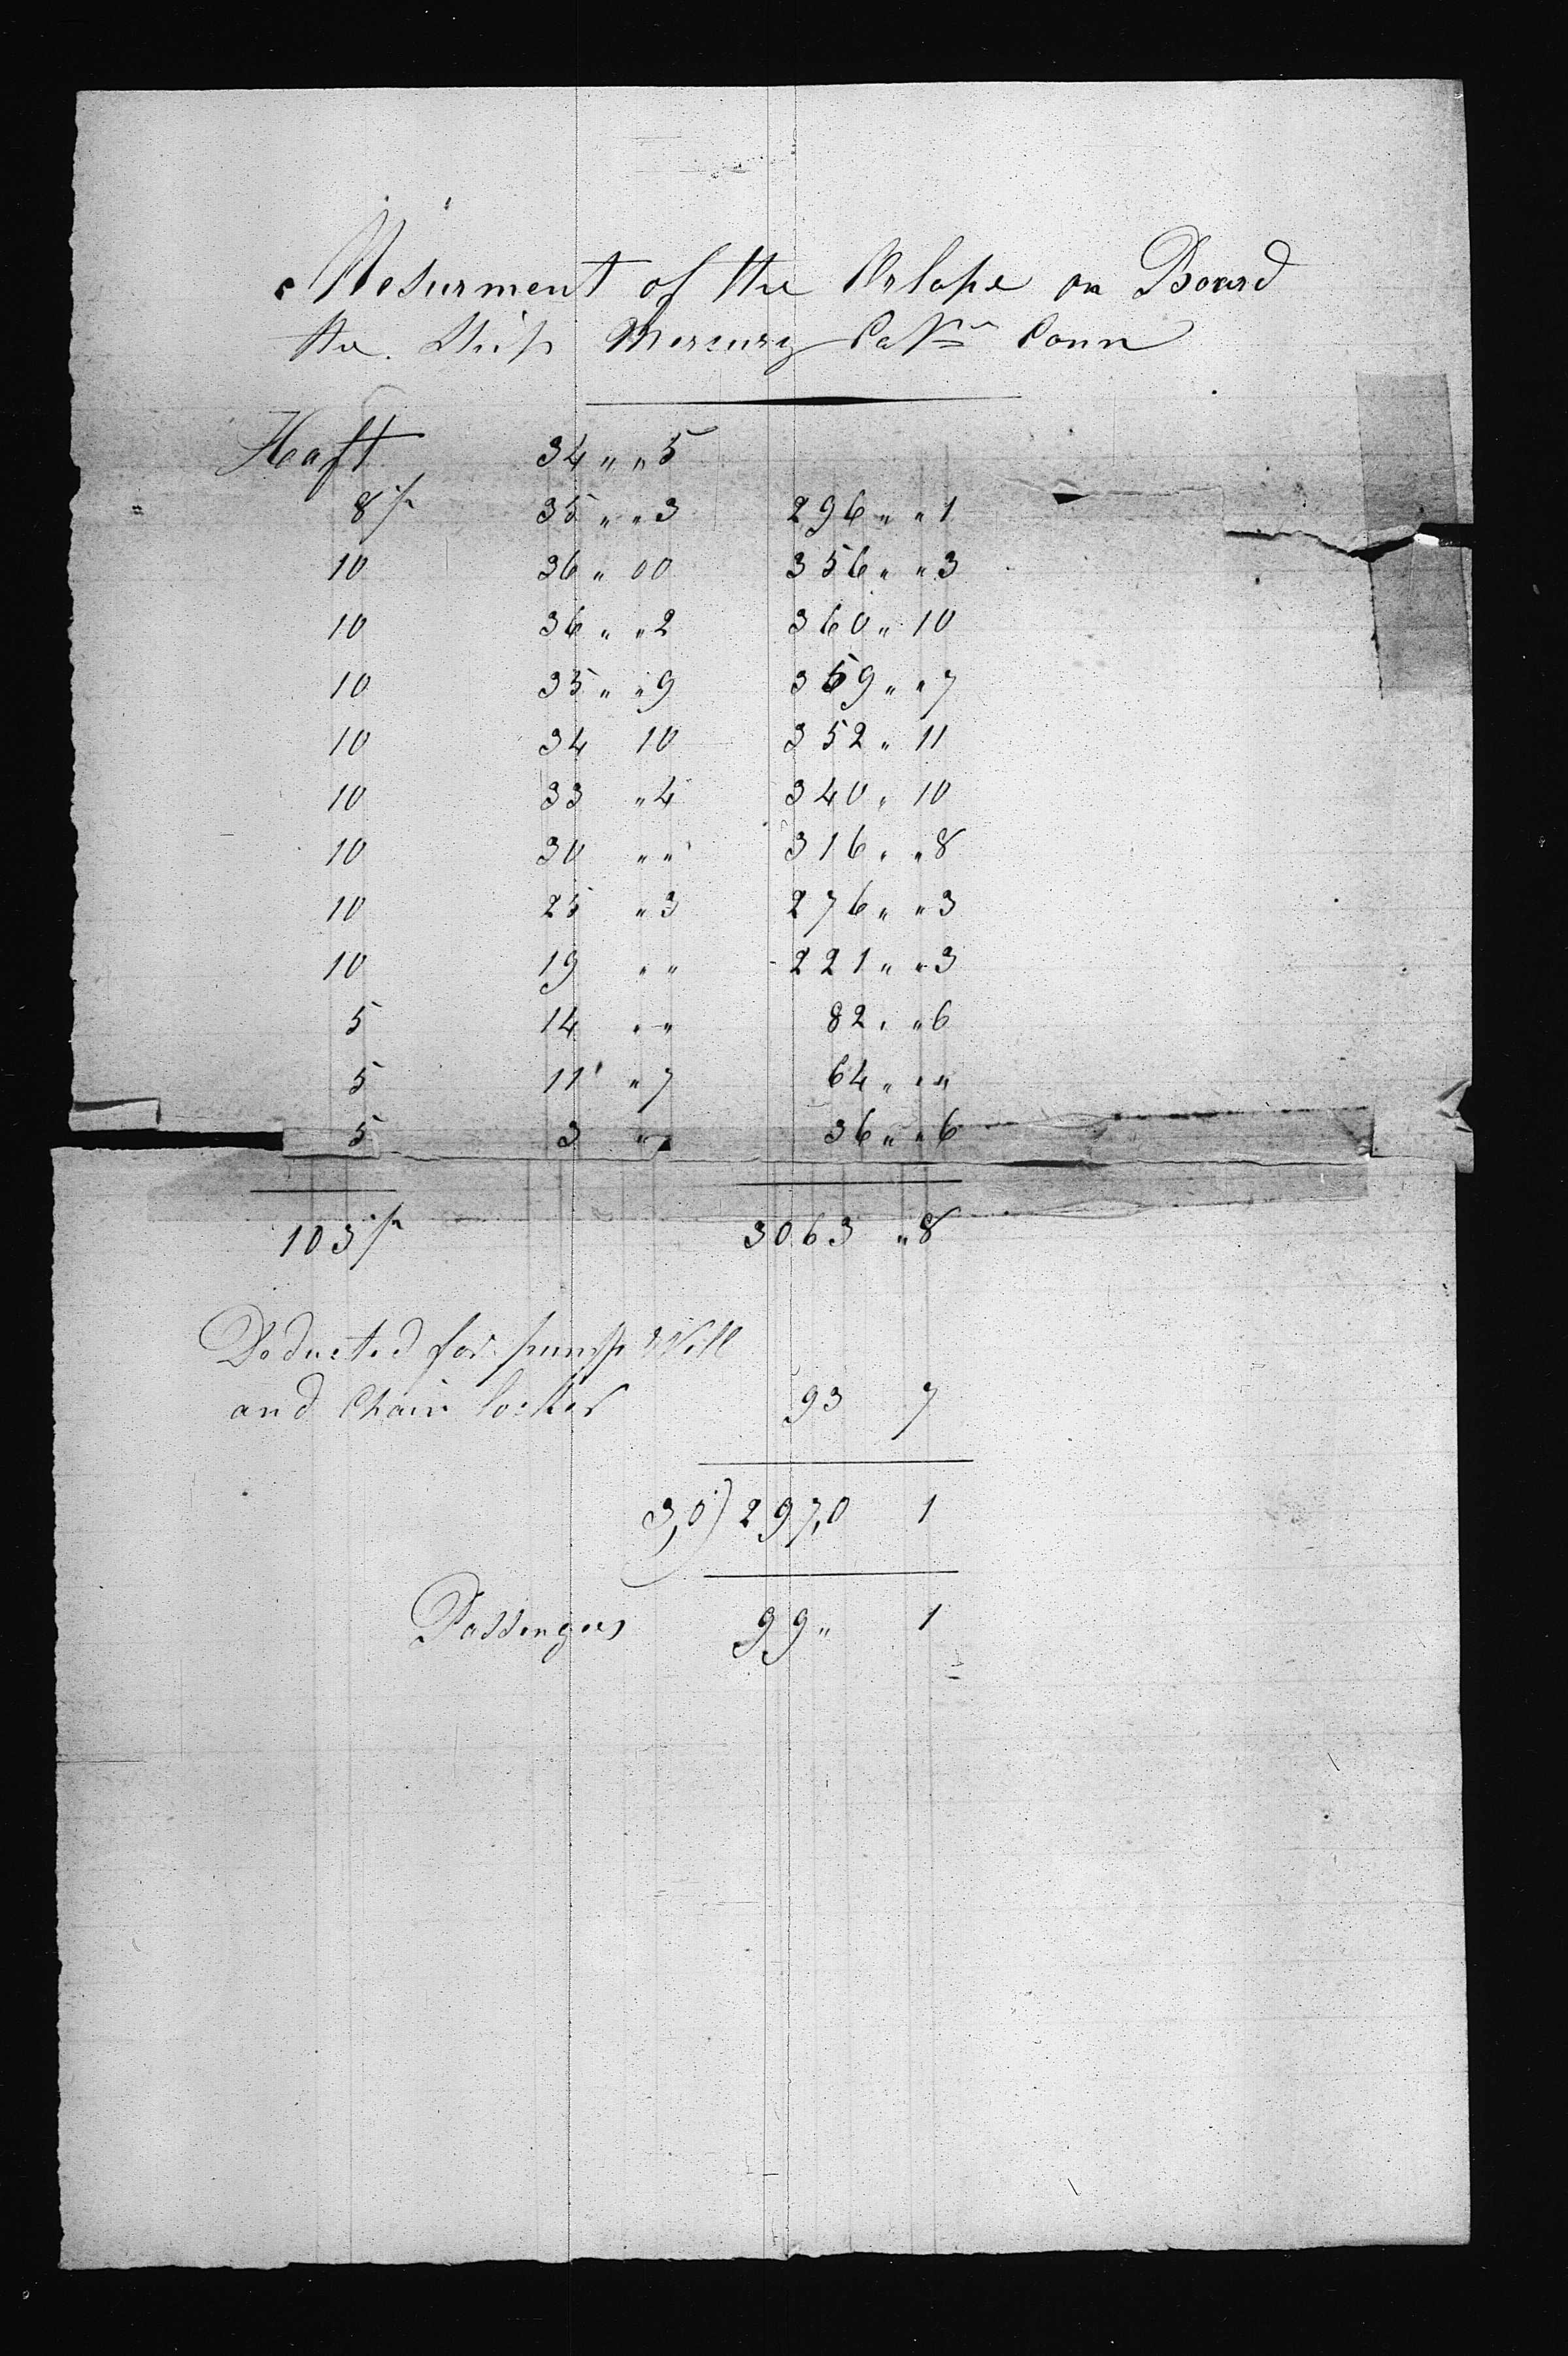 Mesurment of the Orlope on Board
the Ship Mercury Captn Conn
Haft 34 " " 5
8 1/2 35 " " 3 296 " " 1
10 36 " 00 356 " " 3
10 36 " " 2 360 " 10
10 35 " " 9 359 " " 7
10 34 10 352 " 11
10 33 " 4 340 " 10
10 30 " " 316 " " 8
10 25 " 3 276 " " 3
10 19 " " 221 " " 3
5 14 " " 82 " " 6
5 11 " 7 64 " " "
5 3 " " 36 " " 6
103 1/2 3063 " 8
Deducted for pump Well
and Chain locker 93 7
3,0) 297,0 1
Passengers 99 " 1